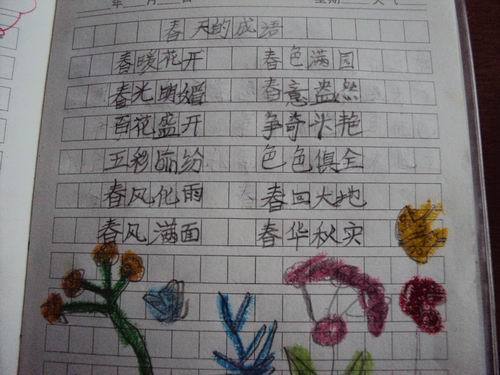 年 月 日 星期 天气
春天的成语
春暖花开 春色满园
春光明媚 春意盎然
百花盛开 争奇斗艳
五彩缤纷 色色俱全
春风化雨 春回大地
春风满面 春华秋实